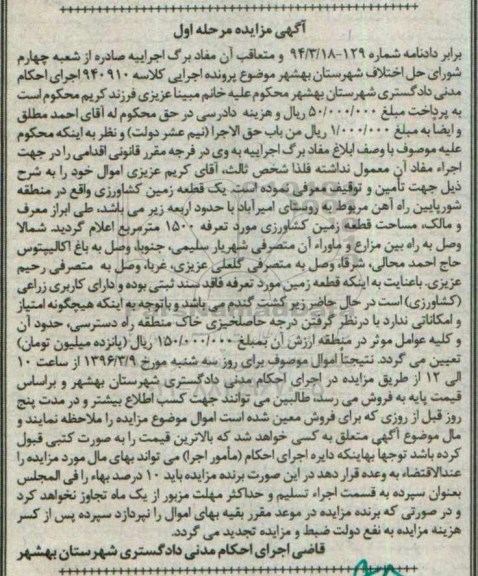 آگهی مزایده مرحله اول
برابر دادنامه شماره ۱۲۹-۹۴/۳/۱۸ و متعاقب آن مفاد برگ اجراییه صادره از شعبه چهارم
شورای حل اختلاف شهرستان بهشهر موضوع پرونده اجرایی کلاسه ۹۴۰۹۱۰ اجرای احکام
مدنی دادگستری شهرستان بهشهر محکوم علیه خانم مبینا عزیزی فرزند کریم محکوم است
به پرداخت مبلغ ۵۰/۰۰۰/۰۰۰ ریال و هزینه دادرسی در حق محکوم له آقای احمد مطلق
و ایضا به مبلغ ۱/۰۰۰/۰۰۰ ریال من باب حق الاجرا (نیم عشر دولت) و نظر به اینکه محکوم
علیه موصوف با وصف ابلاغ مفاد برگ اجراییه به وی در فرجه مقرر قانونی اقدامی را در جهت
اجراء مفاد آن معمول نداشته فلذا شخص ثالث، آقای کریم عزیزی اموال خود را به شرح
ذیل جهت تأمین و توقیف معرفی نموده است. یک قطعه زمین کشاورزی واقع در منطقه
شورپایین راه آهن مربوط به روستای امیرآباد با حدود اربعه زیر می باشد، طی ابراز معرف
و مالک، مساحت قطعه زمین کشاورزی مورد تعرفه ۱۵۰۰ مترمربع اعلام گردید. شمالا
وصل به راه بین مزارع و ماوراء آن متصرفی شهریار سلیمی، جنوبا، وصل به باغ اکالیپتوس
حاج احمد محالی، شرقا، وصل به متصرفی گلعلی عزیزی، غربا، وصل به متصرفی رحیم
عزیزی. باعنایت به اینکه قطعه زمین مورد تعرفه فاقد سند ثبتی بوده و دارای کاربری زراعی
(کشاورزی) است در حال حاضر زیر کشت گندم می باشد و باتوجه به اینکه هیچگونه امتیاز
و امکاناتی ندارد با درنظر گرفتن درجه حاصلخیزی خاک منطقه راه دسترسی، حدود آن
و کلیه عوامل موثر در منطقه ارزش آن بمبلغ ۱۵۰/۰۰۰/۰۰۰ ریال (پانزده میلیون تومان)
تعیین می گردد. نتیجتاً اموال موصوف برای روز سه شنبه مورخ ۱۳۹۶/۳/۹ از ساعت ۱۰
الی ۱۲ از طریق مزایده در اجرای احکام مدنی دادگستری شهرستان بهشهر و براساس
قیمت پایه به فروش می رسد، طالبین می توانند جهت کسب اطلاع بیشتر و در مدت پنج
روز قبل از روزی که برای فروش معین شده است اموال موضوع مزایده را ملاحظه نمایند و
مال موضوع آگهی متعلق به کسی خواهد شد که بالاترین قیمت را به صورت کتبی قبول
کرده باشد توجها بهاینکه دایره اجرای احکام (مأمور اجرا) می تواند بهای مال مورد مزایده را
عندالاقتضاء به وعده قرار دهد در این صورت برنده مزایده باید ۱۰ درصد بهاء را فی المجلس
بعنوان سپرده به قسمت اجراء تسلیم و حداکثر مهلت مزبور از یک ماه تجاوز نخواهد کرد
و در صورتی که برنده مزایده در موعد مقرر بقیه بهای اموال را نپردازد سپرده پس از کسر
هزینه مزایده به نفع دولت ضبط و مزایده تجدید می گردد.
قاضی اجرای احکام مدنی دادگستری شهرستان بهشهر